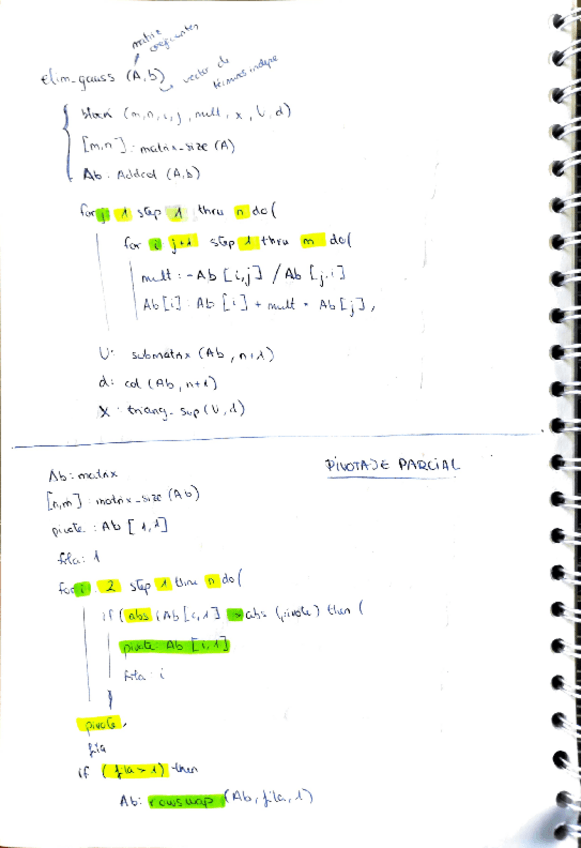 matriz
coeficientes
elim_gauss (A,b) → vector de
términos indepe
block (m,n,i,j,mult,x,U,d)
[m,n] : matrix_size (A)
Ab : Addcol (A,b)
for j: 1 step 1 thru n do(
for i: j+1 step 1 thru m do(
mult : -Ab [i,j] / Ab [j,j]
Ab[i] : Ab [i] + mult * Ab[j],
U: submatrix (Ab, n+1)
d: col (Ab, n+1)
X : triang_sup (U,d)
PIVOTAJE PARCIAL
Ab: matrix
[n,m] : matrix_size (Ab)
pivote : Ab [1,1]
fila: 1
for i: 2 step 1 thru n do(
if (abs (Ab[i,1] > abs (pivote) then (
pivote: Ab [i,1]
fila: i
)
pivote,
fila
if (fila > 1) then
Ab: rowswap (Ab, fila, 1)